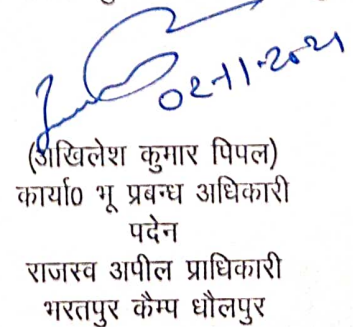 02-11-2021
(अखिलेश कुमार पिपल)
कार्या० भू प्रबन्ध अधिकारी
पदेन
राजस्व अपील प्राधिकारी
भरतपुर कैम्प धौलपुर